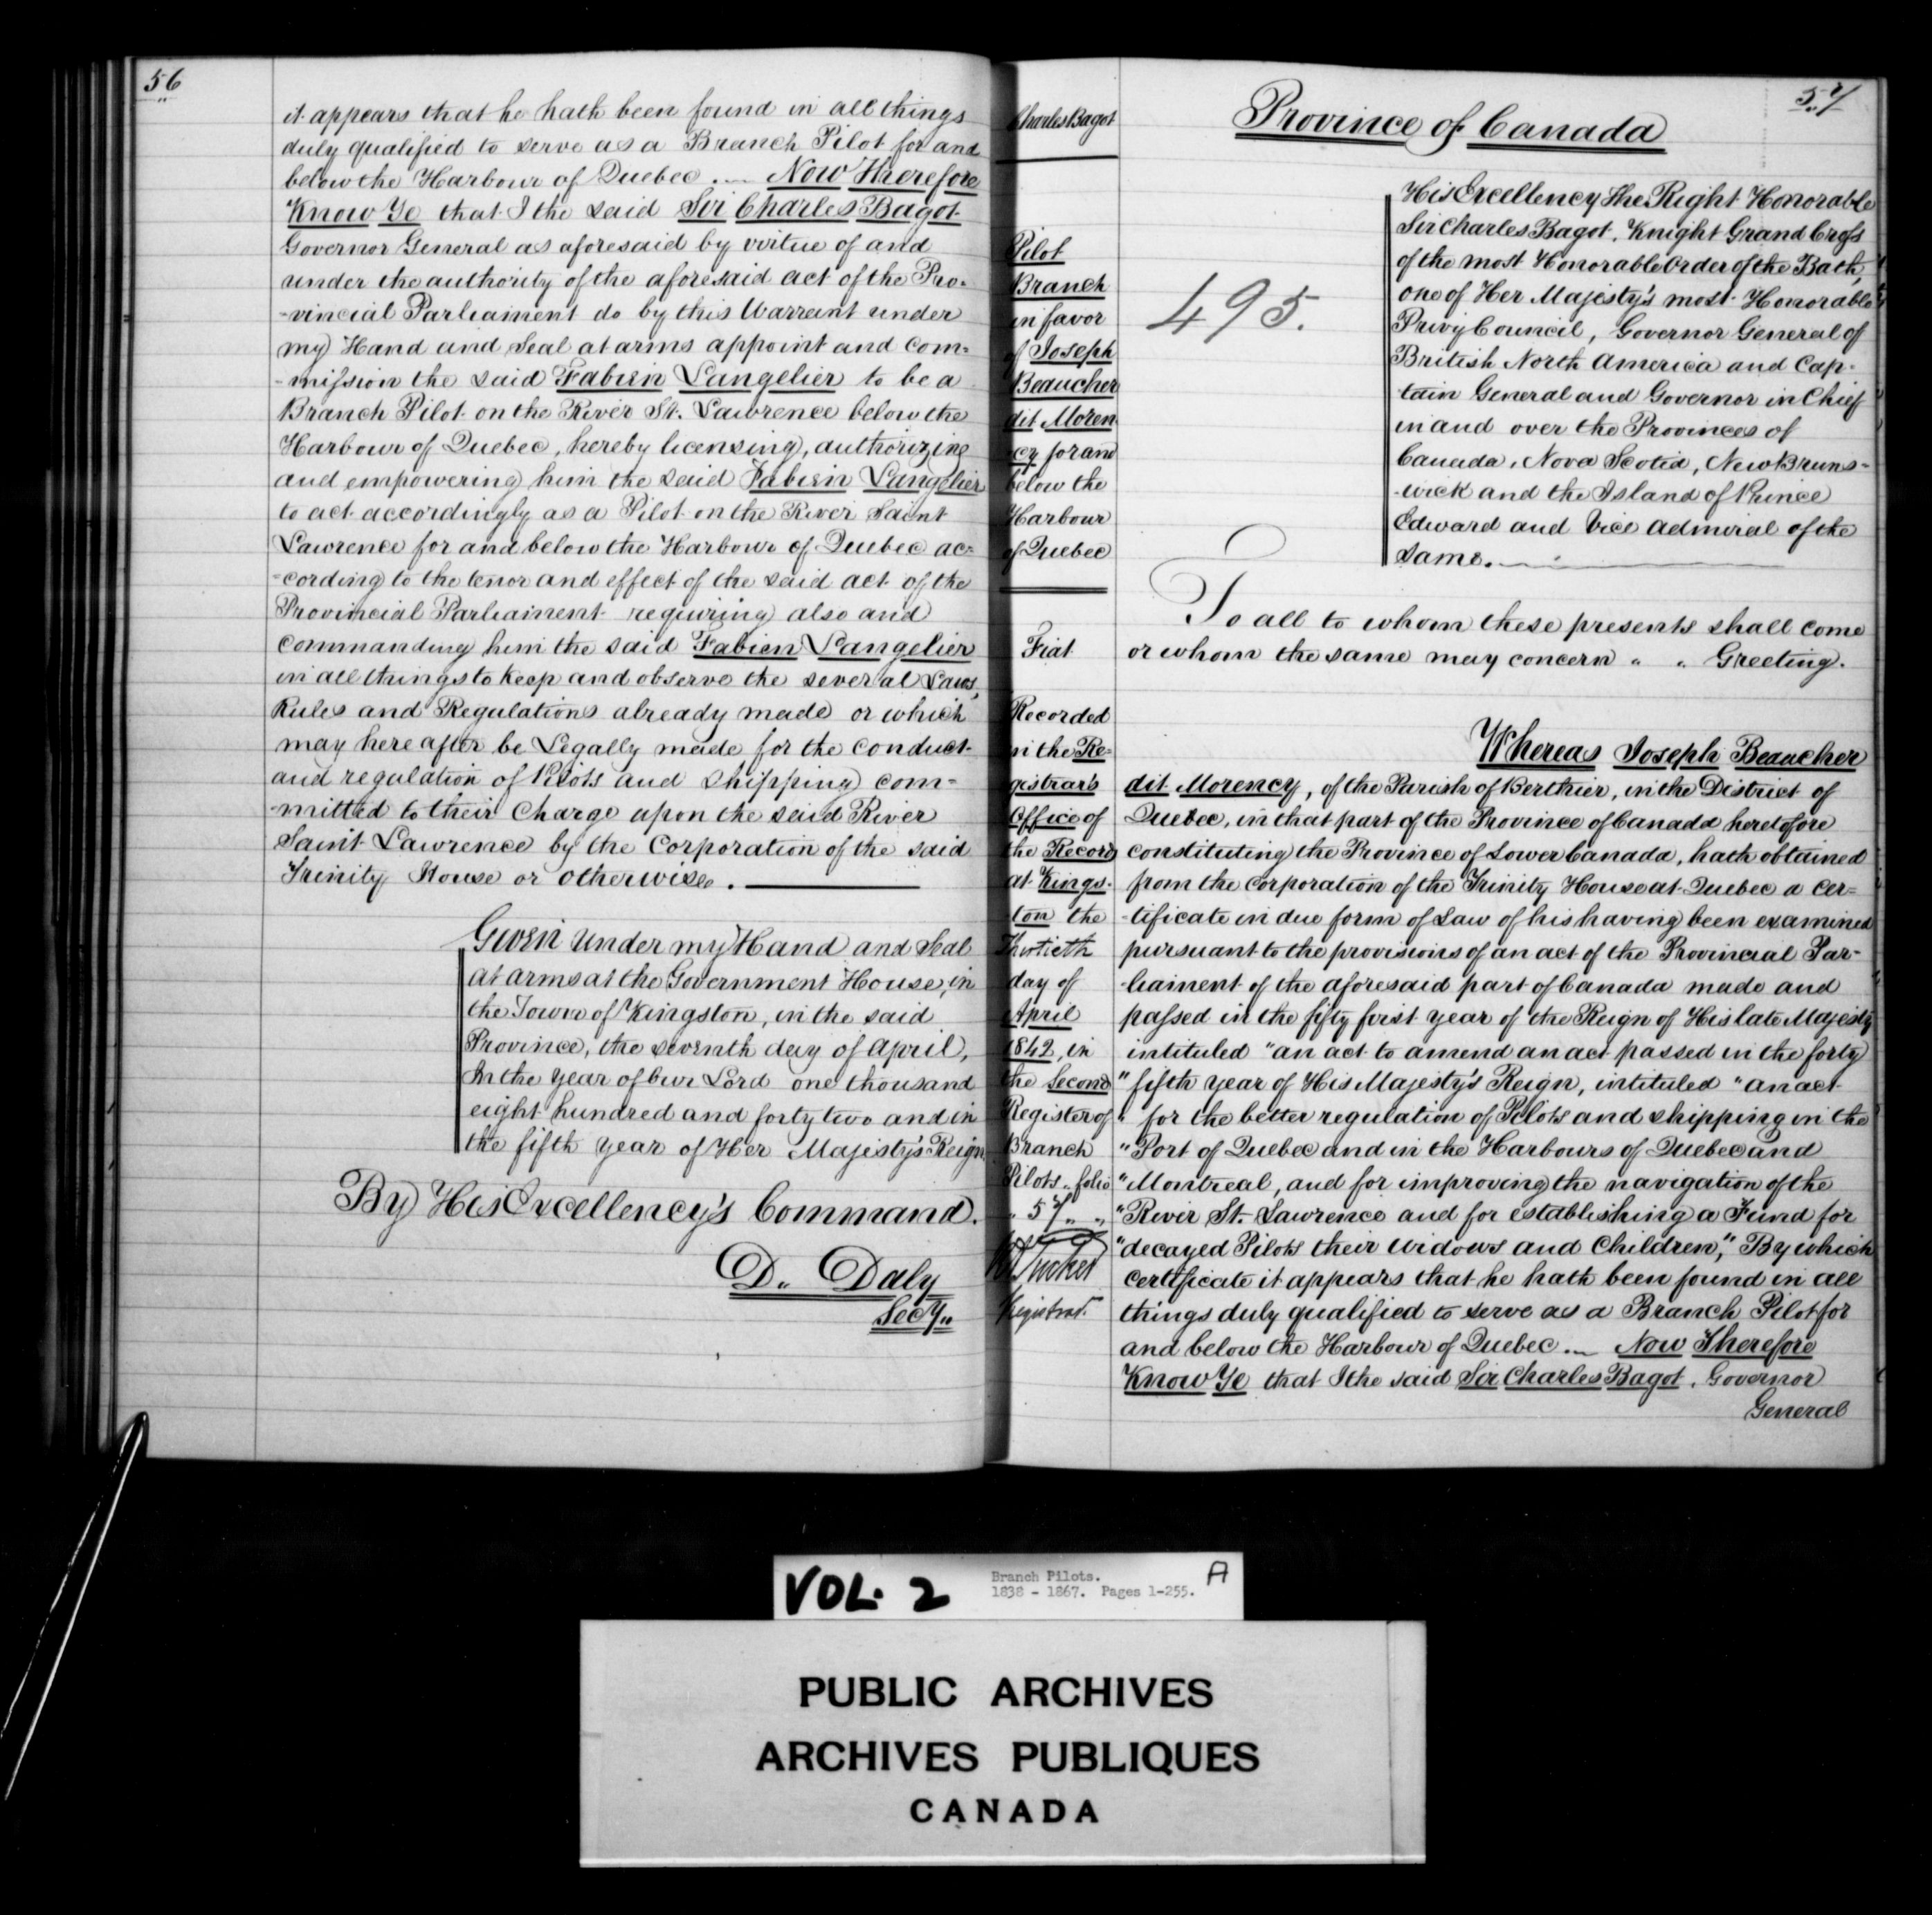 56
it appears that he hath been found in all things
duly qualified to serve as a Branch Pilot for and
below the Harbour of Quebec. Now Therefore
Know Ye that I the said Sir Charles Bagot
Governor General as aforesaid by virtue of and
under the authority of the aforesaid act of the Pro-
-vincial Parliament do by this Warrant under
my Hand and Seal at arms appoint and com-
-mission the said Fabien Langelier to be a
Branch Pilot on the River St. Lawrence below the
Harbour of Quebec, hereby licensing, authorizing
and empowering him the said Fabien Langelier
to act accordingly as a Pilot on the River Saint
Lawrence for and below the Harbour of Quebec ac-
-cording to the tenor and effect of the said act of the
Provincial Parliament requiring also and
commanding him the said Fabien Langelier
in all things to keep and observe the several Laws,
Rules and Regulations already made or which
may here after be Legally made for the conduct
and regulation of Pilots and Shipping com-
-mitted to their Charge upon the said River
Saint Lawrence by the Corporation of the said
Trinity House or otherwise.
Given under my Hand and Seal
at arms at the Government House, in
the Town of Kingston, in the said
Province, the seventh day of April,
In the year of Our Lord one thousand
eight hundred and forty two and in
the fifth year of Her Majesty's Reign
By His Excellency's Command.
D. Daly
Secy.
57
Charles Bagot
Pilot
Branch
in favor
of Joseph
Beaucher
dit Moren
cy for and
below the
Harbour
of Quebec
Fiat
Recorded
in the Re-
gistrar's
Office of
the Record
at Kings-
ton the
Thirtieth
day of
April
1842, in
the Second
Register of
Branch
Pilots, folio
" 57 "
R Tucker
Registrar.
Province of Canada
495.
His Excellency The Right Honorable
Sir Charles Bagot, Knight Grand Cross
of the most Honorable Order of the Bath,
one of Her Majesty's most Honorable
Privy Council, Governor General of
British North America and Cap-
tain General and Governor in Chief
in and over the Provinces of
Canada, Nova Scotia, New Bruns-
-wick and the Island of Prince
Edward and Vice Admiral of the
same.
To all to whom these presents shall come
or whom the same may concern " " Greeting.
Whereas Joseph Beaucher
dit Morency, of the Parish of Berthier, in the District of
Quebec, in that part of the Province of Canada heretofore
constituting the Province of Lower Canada, hath obtained
from the Corporation of the Trinity House at Quebec a cer-
-tificate in due form of Law of his having been examined
pursuant to the provisions of an act of the Provincial Par-
-liament of the aforesaid part of Canada made and
passed in the fifty first year of the Reign of His late Majesty
intituled "an act to amend an act passed in the forty
"fifth year of His Majesty's Reign, intituled "an act
" for the better regulation of Pilots and shipping in the
"Port of Quebec and in the Harbours of Quebec and
"Montreal, and for improving the navigation of the
"River St. Lawrence and for establishing a Fund for
"decayed Pilots their Widows and Children," By which
certificate it appears that he hath been found in all
things duly qualified to serve as a Branch Pilot for
and below the Harbour of Quebec. Now Therefore
Know Ye that I the said Sir Charles Bagot, Governor
General
VOL. 2
Branch Pilots.
1838 - 1867. Pages 1-255.
A
PUBLIC ARCHIVES
ARCHIVES PUBLIQUES
CANADA